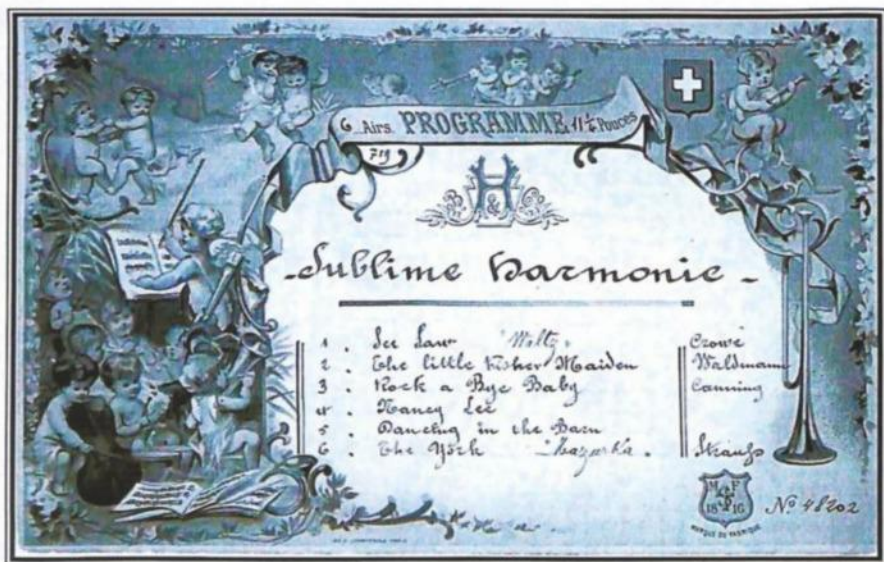 6 Airs. PROGRAMME 11 ½ Pouces
719
B H & C
Sublime Harmonie
1. See Saw Waltz. Crowe
2. The little Fisher Maiden Waldmann
3. Rock a Bye Baby Canning
4. Nancy Lee
5. Dancing in the Barn
6. The York Mazurka. Strauss
M F
18 16
MARQUE DE FABRIQUE
No 48202